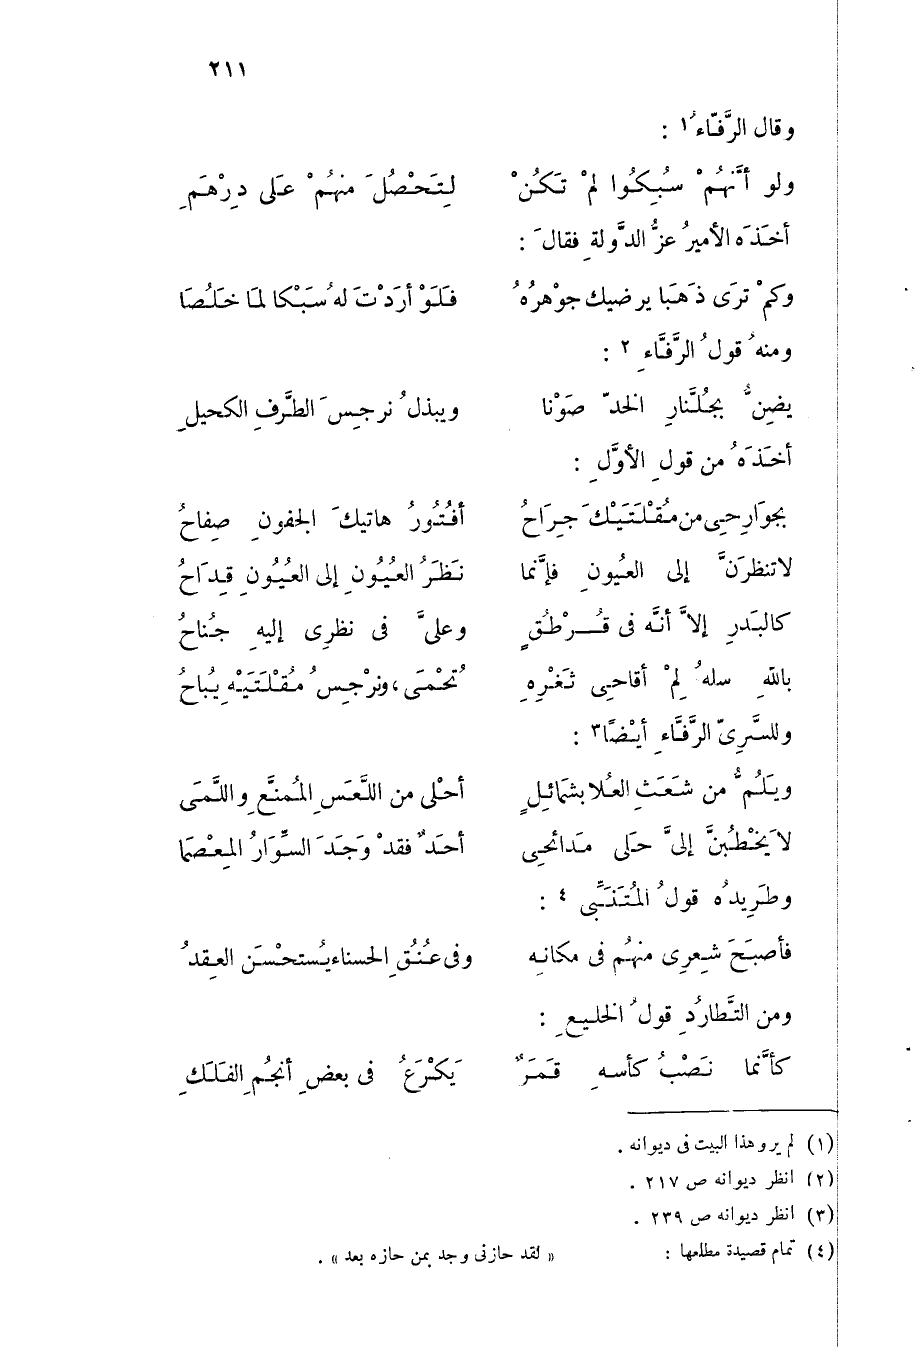 ٢١١
وقال الرَّفّاءُ١ :
ولو أنَّهُمْ سُبِكُوا لمْ تَكُنْ لِتَحْصُلَ منهُمْ عَلَى دِرْهَمِ
أخَذَه الأميرُ عزُّ الدَّولةِ فقالَ :
وكمْ ترَى ذهَبَا يرضيك جوْهرُهُ فَلَوْ أرَدْتَ له سَبْكا لمَا خَلُصَا
ومنهُ قولُ الرَّفَّاءِ ٢ :
يضِنُّ بجُلَّنارِ الخدّ صَوْنا ويبذلُ نرجِسَ الطَّرفِ الكحيلِ
أخَذَهُ من قولِ الأوَّلِ :
بجوَارِحِى من مُقْلَتَيْكَ جِرَاحُ أفُتُورُ هاتيكَ الجفونِ صِفاحُ
لاتنظرَنَّ إلى العيُونِ فإنَّما نَظَرُ العُيُونِ إلى العُيُونِ قِدَاحُ
كالبَدرِ إلاَّ أنَّه فى قُــرْطُقٍ وعلىَّ فى نظرِى إليهِ جُناحُ
باللهِ سلهُ لِمْ أقاحِى ثَغْرِهِ تُحْمَى ، ونرْجِسُ مُقْلَتَيْهِ يُباحُ
وللسَّرِىّ الرَّفَّاءِ أيْضًا٣ :
ويَلُمُّ من شَعَثِ العُلا بشمَائِلٍ أحْلى من اللَّعَسِ المُمنَّعِ واللَّمَى
لا يَخْطُبنَّ إلىَّ حَلى مَدائحِى أحَدٌ فقدْ وَجَدَ السِّوَارُ المِعْصَمَا
وطَرِيدُه قولُ المُتَنَبِّى ٤ :
فأصبَحَ شعِرِى منهُم فى مكانه وفى عُنُقِ الحسناء يُستحْسَن العِقدُ
ومن التَّطارُدِ قولُ الخليعِ :
كأنَّما نَصْبُ كأسهِ قمَرٌ يَكْرَعُ فى بعضِ أنجُمِ الفَلَكِ
(١) لم يرو هذا البيت فى ديوانه .
(٢) انظر ديوانه ص ٢١٧ .
(٣) انظر ديوانه ص ٢٣٩ .
(٤) تمام قصيدة مطلعها : « لقد حازنى وجد بمن حازه بعد » .